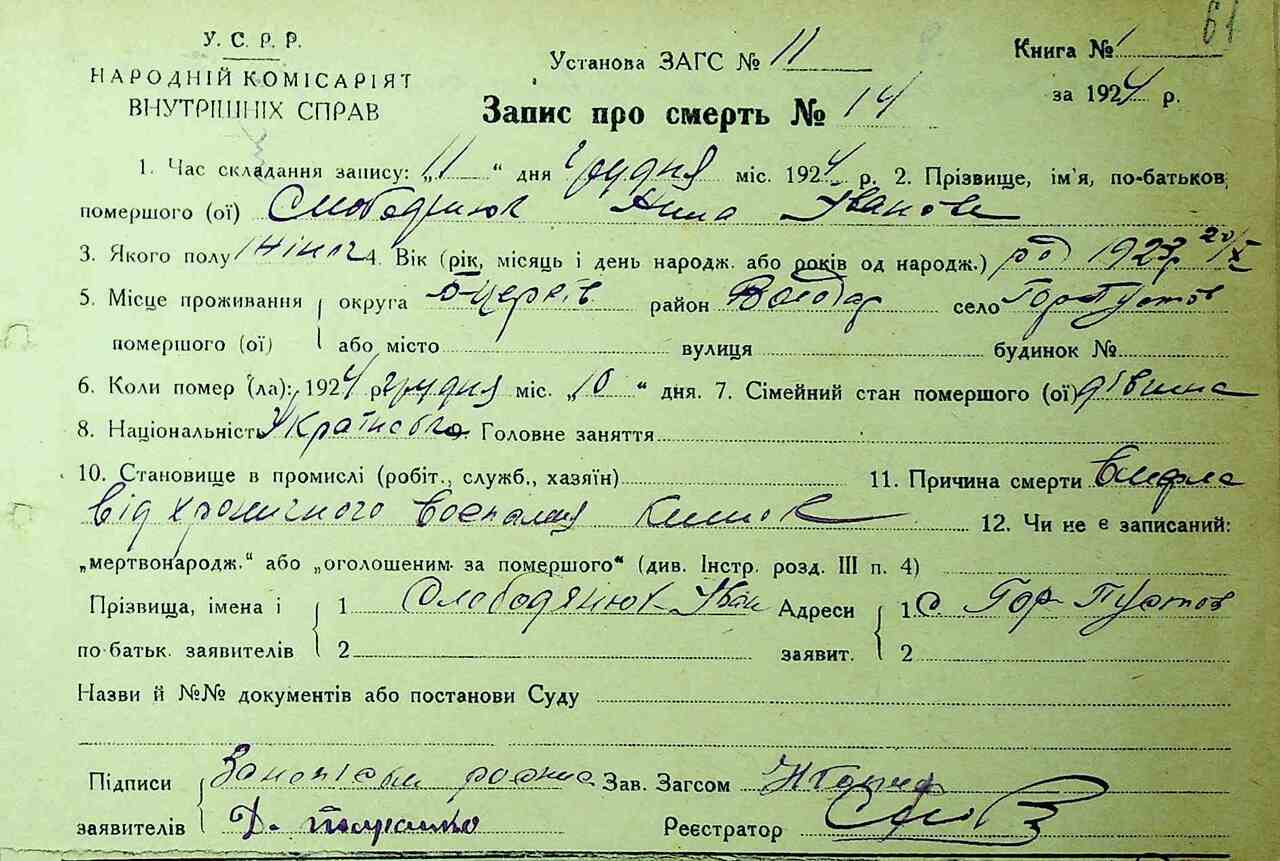 61
У. С. Р. Р.
НАРОДНІЙ КОМІСАРІЯТ
ВНУТРІШНІХ СПРАВ
Установа ЗАГС № 11
Книга № 1
за 1924 р.
Запис про смерть № 14
1. Час складання запису: „11“ дня грудня міс. 1924 р. 2. Прізвище, ім'я, по-батьков,
помершого (ої) Слободянюк Анна Іванове
3. Якого полу жіноч 4. Вік (рік, місяць і день народж. або років од народж.)
5. Місце проживання округа Б-Церків район Володар село Гор-Пустов
помершого (ої) або місто вулиця будинок №
6. Коли помер (ла): 1924 р. грудня міс. „10“ дня. 7. Сімейний стан помершого (ої) дівиця
8. Національність Українська Головне заняття
10. Становище в промислі (робіт., служб., хазяїн) 11. Причина смерти вмерла
від хроничного воспалния кишок 12. Чи не є записаний:
„мертвонародж.“ або „оголошеним за помершого“ (див. Інстр. розд. III п. 4)
Прізвища, імена і 1 Слободянюк Іван Адреси 1 С. Гор-Пустов
по-батьк. заявителів 2 заявит. 2
Назви й №№ документів або постанови Суду
Підписи Зав. Загсом
заявителів Реєстратор